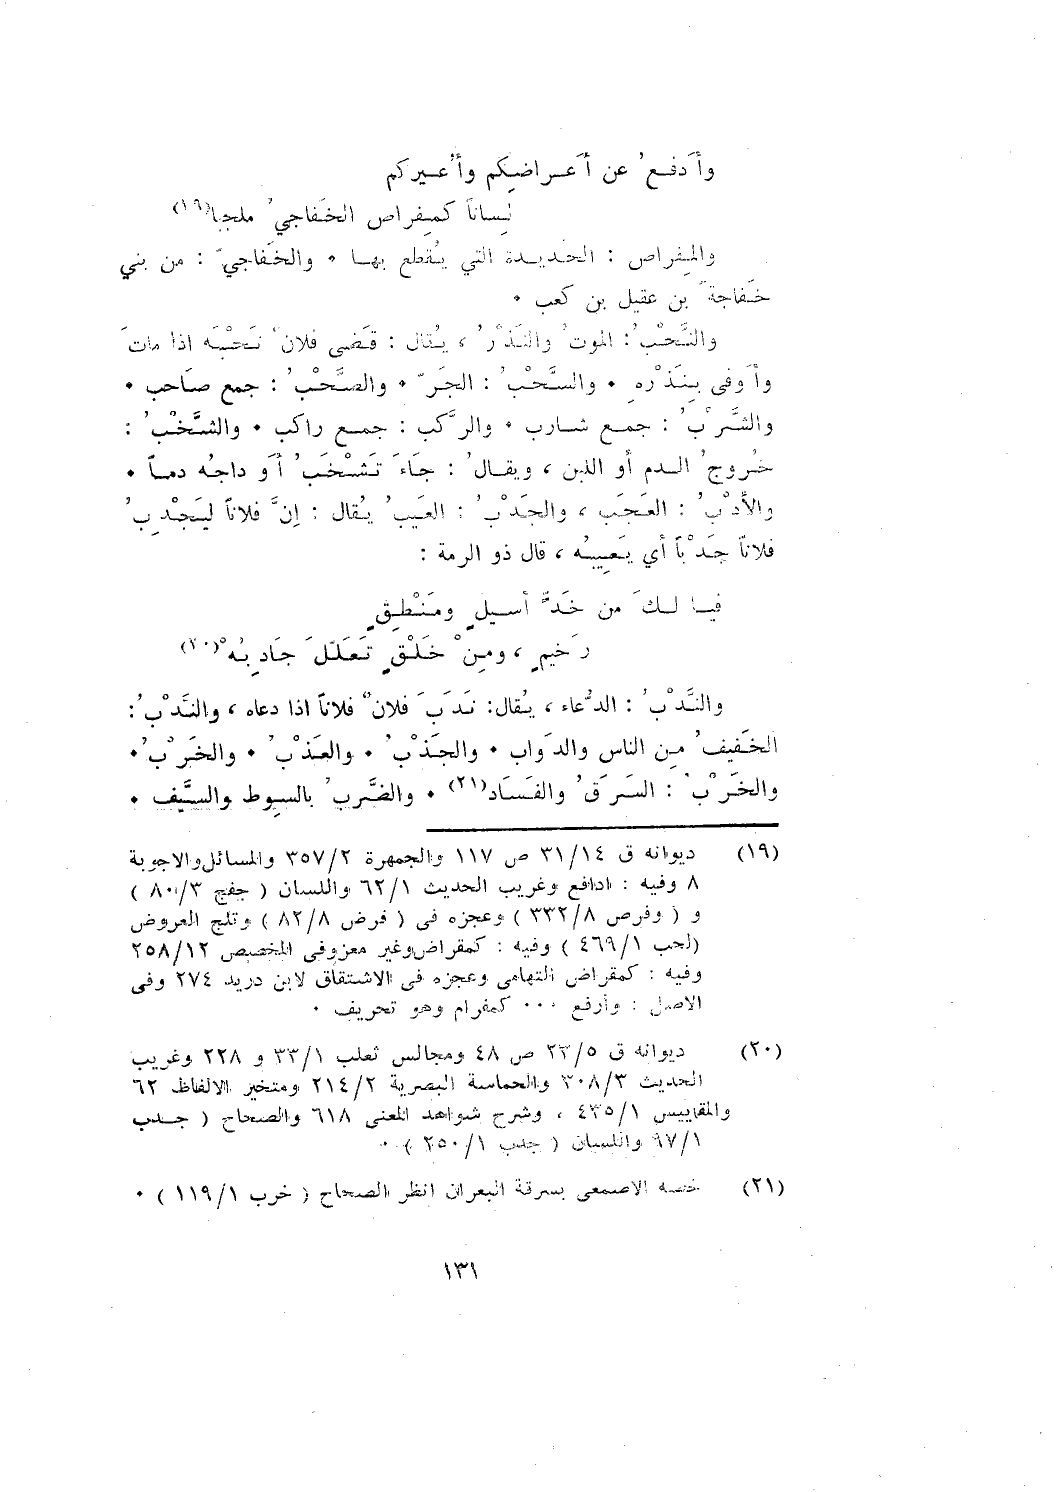 وأَدفعُ عن أَعراضِكم وأُعيركم
لِساناً كمِفراص الخَفاجيُ ملحبا(١٩)
والمِفراص : الحَديدة التي يُقطع بها • والخَفاجيّ : من بني
خَفاجةَ بن عقيل بن كعب •
والنَّحْبُ : الموتُ والنَذْرُ ، يُقال : قَضى فلانٌ نَحْبَه اذا ماتَ
وأَوفى بِنَذْرِه • والسَّحْبُ : الجَرّ • والصَّحْبُ : جمع صَاحب •
والشَّرْبُ : جمع شارب • والرَّكب : جمع راكب • والشَّخْبُ :
خُروجُ الدم أو اللبن ، ويقالُ : جَاءَ تَشْخَبُ أَوداجُه دماً •
والأَدْبُ : العَجَب ، والجَدْبُ : العَيبُ يُقال : إنَّ فلاناً ليَجْدِبُ
فلاناً جَدْباً أي يَعيبُه ، قال ذو الرمة :
فيا لكَ من خَدٍّ أسيلٍ ومَنْطِقٍ
رَخيمٍ ، ومِنْ خَلْقٍ تَعَلّلَ جَادِبُهْ(٢٠)
والنَّدْبُ : الدُّعاء ، يُقال : نَدَبَ فلانٌ فلاناً اذا دعاه ، والنَّدْبُ :
الخَفيفُ مِن الناس والدَواب • والجَذْبُ • والعَذْبُ • والخَرْبُ •
والخَرْبُ : السَرَقُ والفَسَاد(٢١) • والضَّربُ بالسوط والسَّيف •
(١٩) ديوانه ق ٣١/١٤ ص ١١٧ والجمهرة ٣٥٧/٢ والمسائل والاجوبة
٨ وفيه : ادافع وغريب الحديث ٦٢/١ واللسان ( جفج ٨٠/٣ )
و ( وفرص ٣٣٢/٨ ) وعجزه فى ( فرض ٨٢/٨ ) وتلج العروض
(لحب ٤٦٩/١ ) وفيه : كمقراض وغير معزو فى المخصص ٢٥٨/١٢
وفيه : كمقراض التهامى وعجزه فى الاشتقاق لابن دريد ٢٧٤ وفى
الاصل : وأرفع ٠٠٠ كمفرام وهو تحريف •
(٢٠) ديوانه ق ٢٣/٥ ص ٤٨ ومجالس ثعلب ٣٣/١ و ٢٢٨ وغريب
الحديث ٣٠٨/٣ والحماسة البصرية ٢١٤/٢ ومتخير الالفاظ ٦٢
والمقاييس ٤٣٥/١ ، وشرح شواهد المغنى ٦١٨ والصحاح ( جدب
٩٧/١ واللسان ( جدب ٢٥٠/١ ) •
(٢١) خصه الاصمعى بسرقة البعران انظر الصحاح ( خرب ١١٩/١ ) •
١٣١